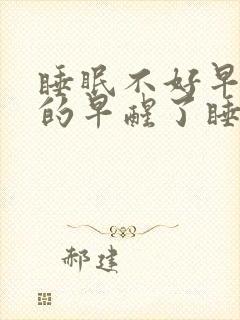 睡眠不好早
的早醒了睡
郝建